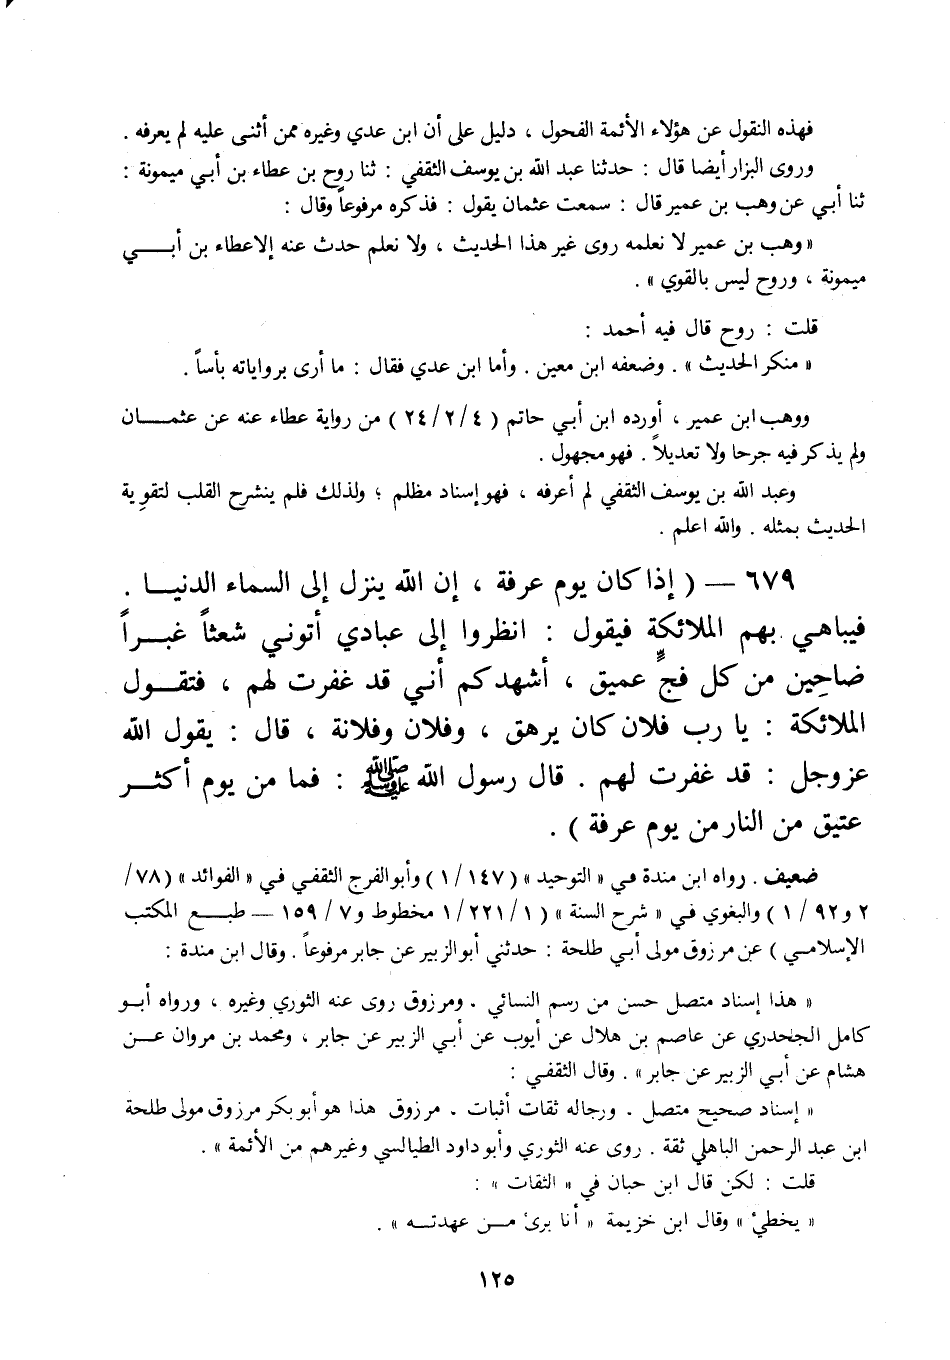 فهذه النقول عن هؤلاء الأئمة الفحول ، دليل على أن ابن عدي وغيره ممن أثنى عليه لم يعرفه .
وروى البزار أيضا قال : حدثنا عبد الله بن يوسف الثقفي : ثنا روح بن عطاء بن أبي ميمونة :
ثنا أبي عن وهب بن عمير قال : سمعت عثمان يقول : فذكره مرفوعاً وقال :
« وهب بن عمير لا نعلمه روى غير هذا الحديث ، ولا نعلم حدث عنه إلا عطاء بن أبي
ميمونة ، وروح ليس بالقوي » .
قلت : روح قال فيه أحمد :
« منكر الحديث » . وضعفه ابن معين . وأما ابن عدي فقال : ما أرى برواياته بأساً .
ووهب ابن عمير ، أورده ابن أبي حاتم ( ٤/ ٢/ ٢٤ ) من رواية عطاء عنه عن عثمان
ولم يذكر فيه جرحا ولا تعديلاً . فهو مجهول .
وعبد الله بن يوسف الثقفي لم أعرفه ، فهو إسناد مظلم ؛ ولذلك فلم ينشرح القلب لتقوية
الحديث بمثله . والله اعلم .
٦٧٩ – ( إذا كان يوم عرفة ، إن الله ينزل إلى السماء الدنيا .
فيباهي بهم الملائكة فيقول : انظروا إلى عبادي أتوني شعثاً غبراً
ضاحين من كل فجٍّ عميق ، أشهدكم أني قد غفرت لهم ، فتقول
الملائكة : يا رب فلان كان يرهق ، وفلان وفلانة ، قال : يقول الله
عزوجل : قد غفرت لهم . قال رسول الله ﷺ : فما من يوم أكثر
عتيق من النار من يوم عرفة ) .
ضعيف . رواه ابن مندة في « التوحيد » (١٤٧/ ١) وأبو الفرج الثقفي في « الفوائد » (٧٨/
٢ و٩٢/ ١) والبغوي في « شرح السنة » ( ١/ ٢٢١/ ١ مخطوط و٧/ ١٥٩ – طبع المكتب
الإسلامي ) عن مرزوق مولى أبي طلحة : حدثني أبو الزبير عن جابر مرفوعاً . وقال ابن مندة :
« هذا إسناد متصل حسن من رسم النسائي . ومرزوق روى عنه الثوري وغيره ، ورواه أبو
كامل الجحدري عن عاصم بن هلال عن أيوب عن أبي الزبير عن جابر ، ومحمد بن مروان عن
هشام عن أبي الزبير عن جابر » . وقال الثقفي :
« إسناد صحيح متصل . ورجاله ثقات أثبات . مرزوق هذا هو أبو بكر مرزوق مولى طلحة
ابن عبد الرحمن الباهلي ثقة . روى عنه الثوري وأبو داود الطيالسي وغيرهم من الأئمة » .
قلت : لكن قال ابن حبان في « الثقات » :
« يخطئ » وقال ابن خزيمة « أنا برئ من عهدته » .
١٢٥